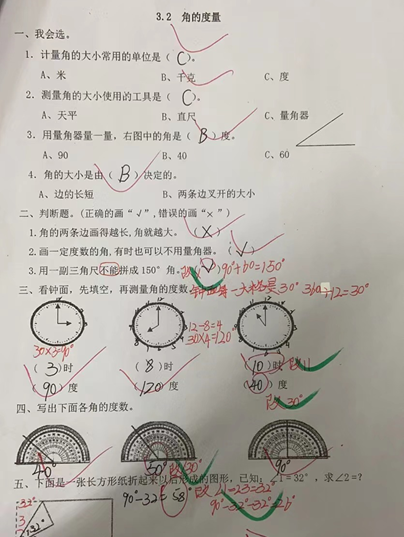 3.2 角的度量
一、我会选。
1．计量角的大小常用的单位是（ C ）。
A、米 B、千克 C、度
2．测量角的大小使用的工具是（ C ）。
A、天平 B、直尺 C、量角器
3．用量角器量一量，右图中的角是（ B ）度。
A、90 B、40 C、60
4．角的大小是由（ B ）决定的。
A、边的长短 B、两条边叉开的大小
二、判断题。（正确的画“√”，错误的画“×”）
1.角的两条边画得越长，角就越大。（ X ）
2.画一定度数的角，有时也可以不用量角器。（ √ ）
3.用一副三角尺不能拼成150°角。（ √ ） 90°+60=150°
三、看钟面，先填空，再测量角的度数。 30° 360÷12=30°
30×3=90° 12-8=4 30×4=120
（ 3 ）时 （ 8 ）时 （ 10 ）时 改11
（ 90 ）度 （ 120 ）度 （ 40 ）度
改 30°
四、写出下面各角的度数。
40° 50° 改130° 90°
五、下面是一张长方形纸折起来以后形成的图形，已知：∠1=32°，求∠2=？
90°-32=58° 改
90°-32°-32°=26°